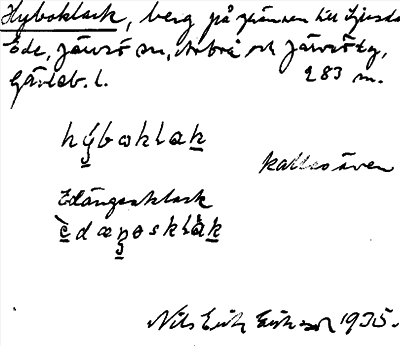 Hyboklack, berg på gränsen till Ljusdal
Ede, Järvsö sn, Arbrå och Järvsö tg,
Gävleb. l. 283 m.
hýboklak
kallas även
Edängsaklack
èdæŋosklàk
Nils Erik Eriksson 1935.